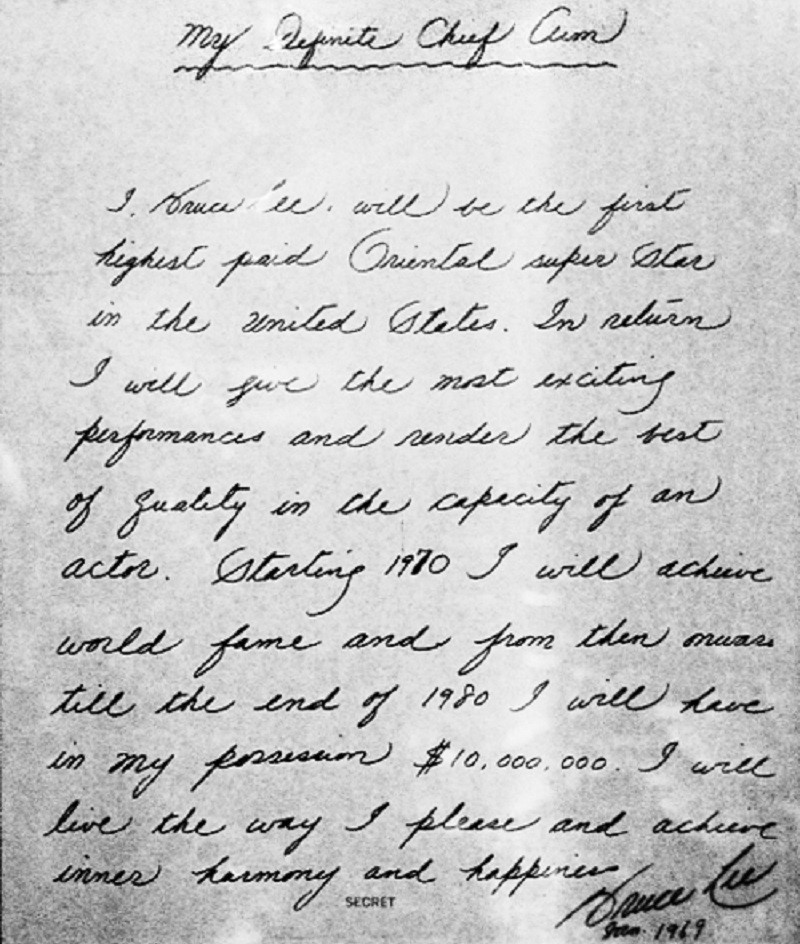 My Definite Chief Aim
I, Bruce Lee, will be the first
highest paid Oriental super Star
in the United States. In return
I will give the most exciting
performances and render the best
of quality in the capacity of an
actor. Starting 1970 I will achieve
world fame and from then onward
till the end of 1980 I will have
in my possession $10,000,000. I will
live the way I please and achieve
inner harmony and happiness
Bruce Lee
Jan. 1969
SECRET